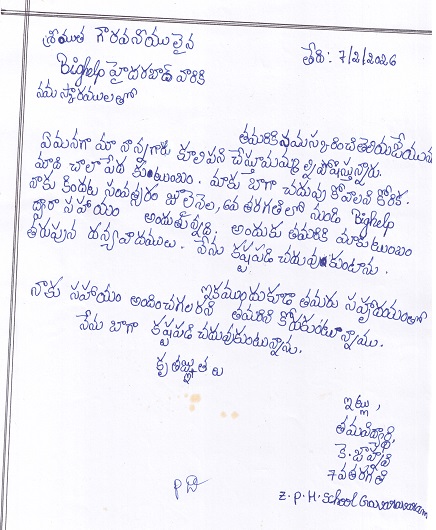 శ్రీయుత గౌరవనీయులైన
తేది: 7/2/2026
Bighelp హైదరబాద్ వారికి
నమస్కారములతో
తమరికి నమస్కరించి తెలియజేయున
ఏమనగా మా నాన్నగారు కూలిపని చేస్తూ మమ్మల్ని పోషిస్తున్నారు.
మాది చాలా పేద కుటుంబం. మాకు బాగా చదువుకోవాలని కోరిక.
నాకు కిందటి సంవత్సరం జులై నెల, 6వ తరగతిలో నుండి Bighelp
ద్వారా సహాయం అందుతున్నది. అందుకు తమరికి మాకుటుంబం
తరుపున దన్యవాదములు. నేను కష్టపడి చదువుకుంటాను.
ఇకముందుకూడా తమరు సహృదయంతో
నాకు సహాయం అందించగలరని తమరిని కోరుకుంటున్నాము.
నేను బాగా కష్టపడి చదువుకుంటున్నాను.
కృతజ్ఞతలు
ఇట్లు,
తమవిద్యార్థి,
కె.
7వతరగతి
Z.P.H. School